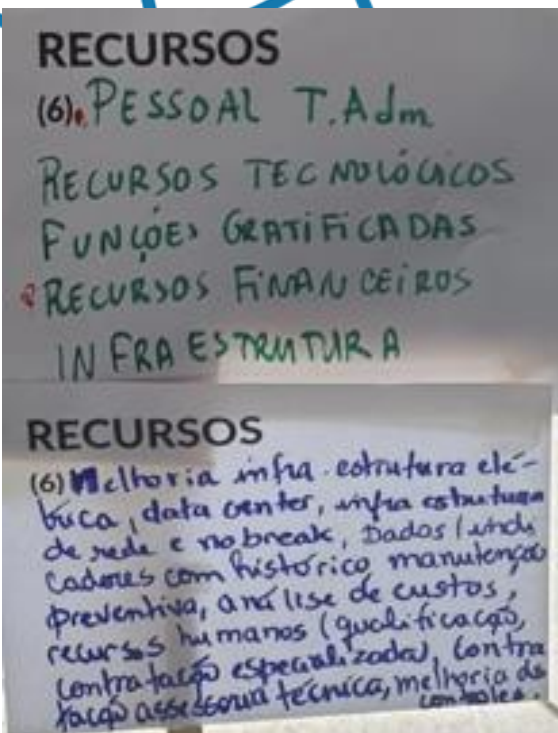 RECURSOS
(6). PESSOAL T.Adm
RECURSOS TECNOLÓGICOS
FUNÇÕES GRATIFICADAS
RECURSOS FINANCEIROS
INFRAESTRUTURA
RECURSOS
(6) Melhoria infra-estrutura elé-
trica, data center, infra estrutura
de rede e nobreak, Dados/indi
cadores com histórico, manutenção
preventiva, análise de custos,
recursos humanos (qualificação,
contratação especializada), contra
tação assessoria técnica, melhoria de
controles.